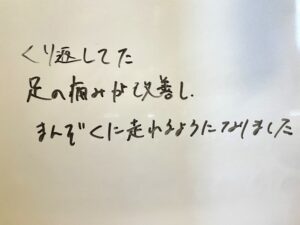 くり返してた
足の痛みが改善し、
まんぞくに走れるようになりました